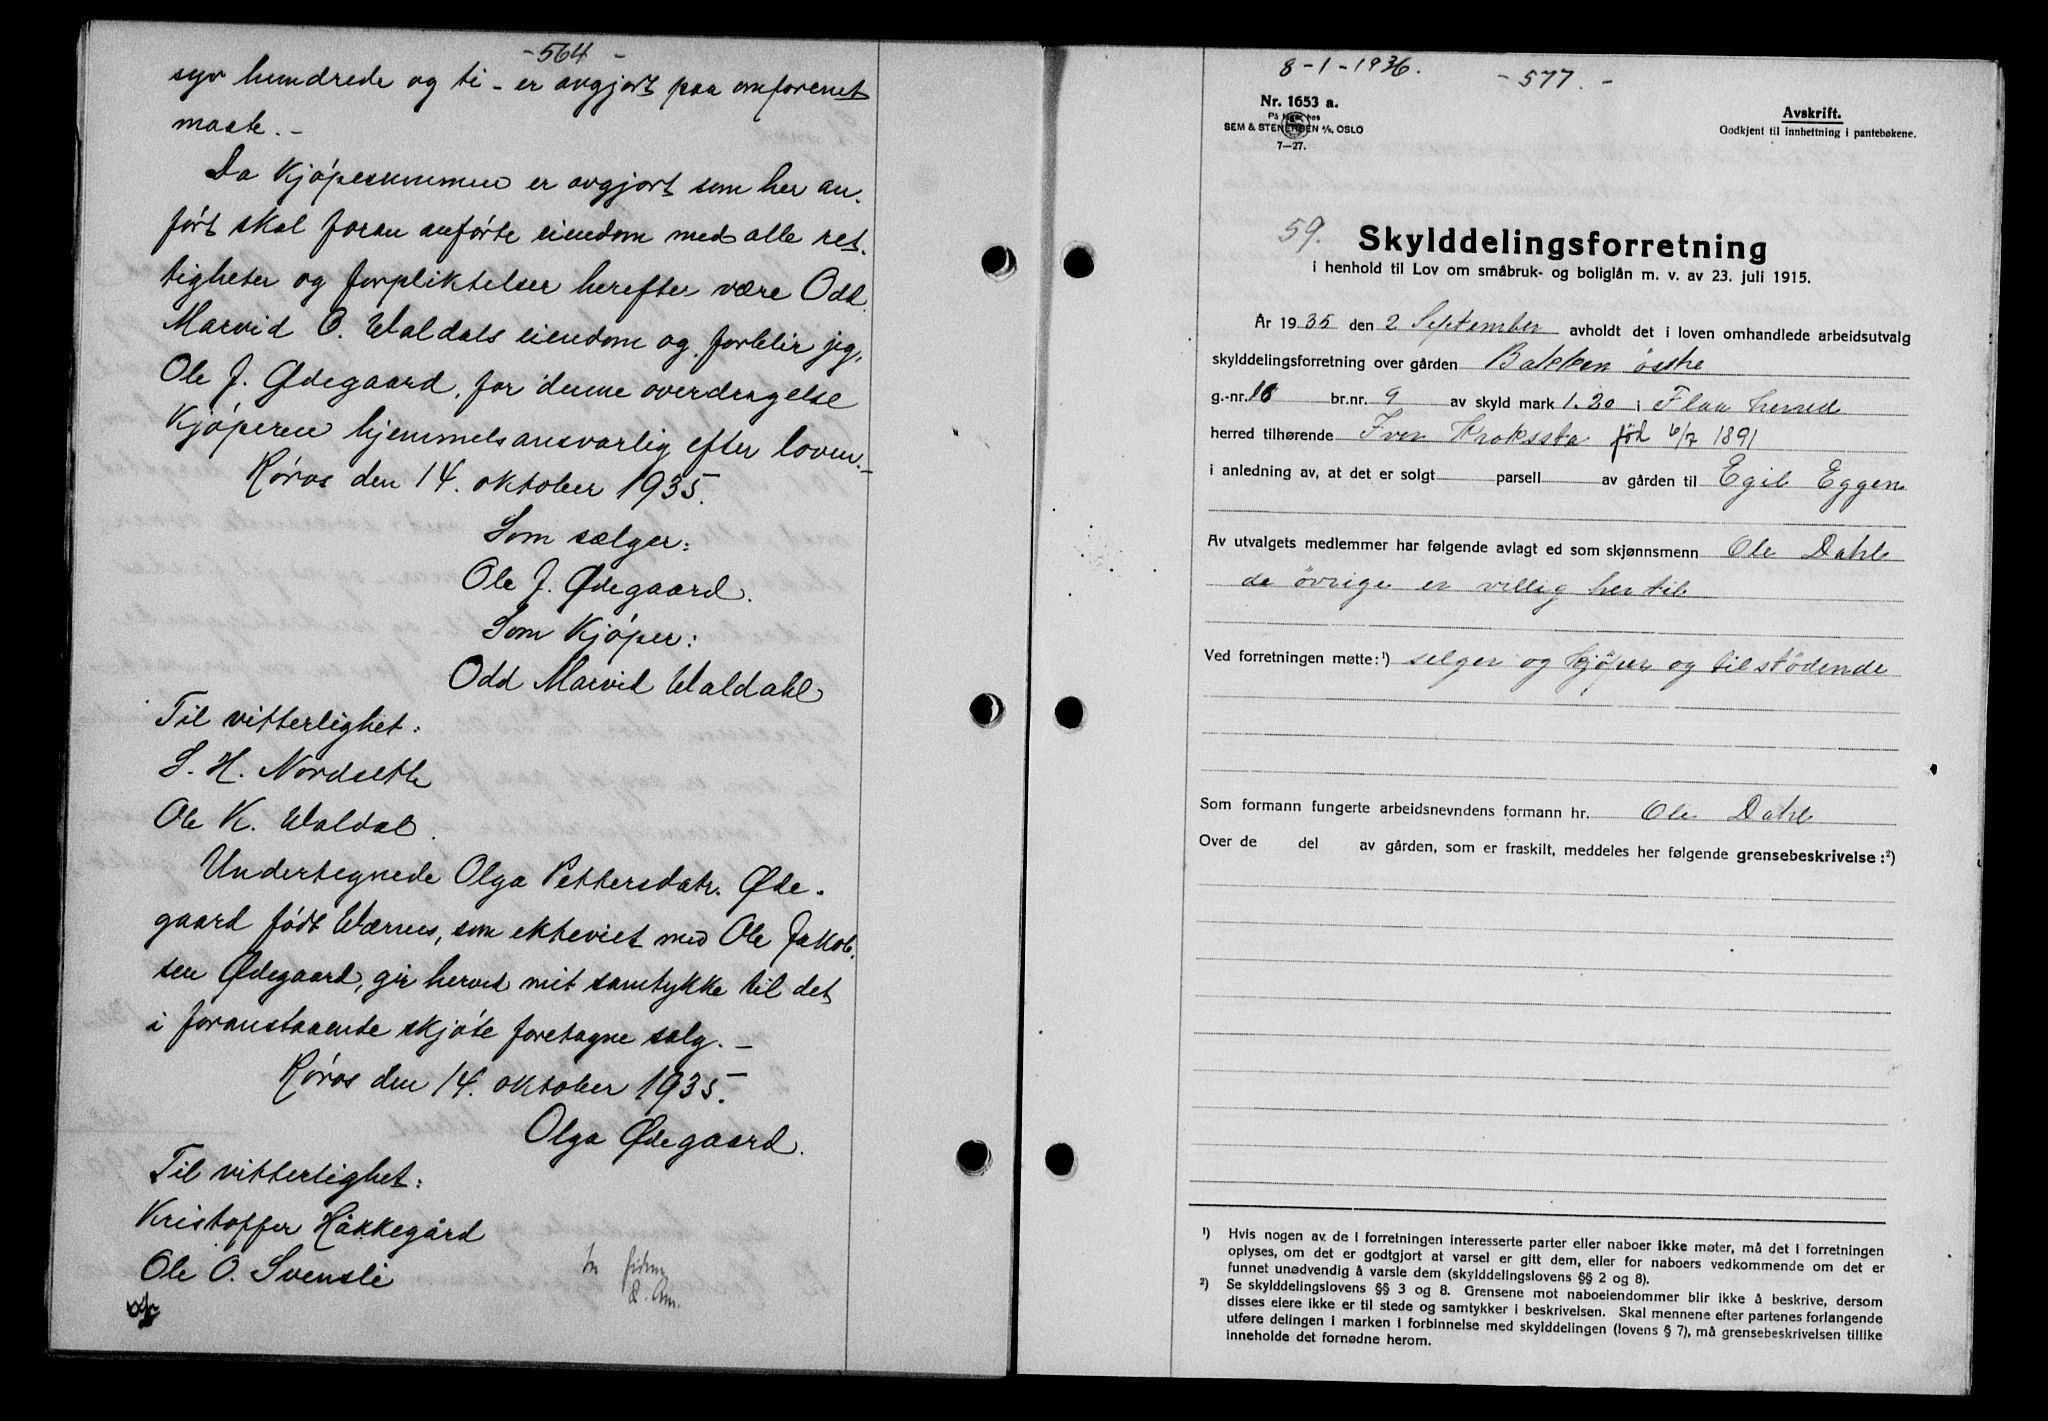 - 564 -
syv hundrede og ti - er avgjort paa omforenet
maate. -
Da Kjøpesummen er avgjort som her an-
ført skal foran anførte eiendom med alle ret-
tigheter og forpliktelser herefter være Odd
Marvid O. Waldals eiendom og forblir jeg,
Ole J. Ødegaard, for denne overdragelse
Kjøperen hjemmelsansvarlig efter loven. -
Røros den 14. oktober 1935.
Som sælger:
Ole J. Ødegaard.
Som Kjøper:
Odd Marvid Waldahl
Til vitterlighet:
S. H. Nordseth
Ole K. Waldal.
Undertegnede Olga Pettersdatr. Øde-
gaard født Wærnes, som ekteviet med Ole Jakob-
sen Ødegaard, gir herved mit samtykke til det
i foranstaaende skjøte foretagne salg. -
Røros den 14. oktober 1935.
Olga Ødegaard.
Til vitterlighet:
Kristoffer Håkkegård
Ole O. Svensli
8-1-1936.
- 577. -
Nr. 1653 a.
På lager hos
SEM & STENERSEN A/S, OSLO
7—27.
Avskrift.
Godkjent til innheftning i pantebøkene.
59.
Skylddelingsforretning
i henhold til Lov om småbruk- og boliglån m. v. av 23. juli 1915.
År 1935 den 2 September avholdt det i loven omhandlede arbeidsutvalg
skylddelingsforretning over gården Bakken östre
g.-nr. 18 br.nr. 9 av skyld mark 1.20 i Flaa herred
herred tilhørende Iver Krokssta föd 6/7 1891
i anledning av, at det er solgt parsell av gården til Egil Eggen
Av utvalgets medlemmer har følgende avlagt ed som skjønnsmenn Ole Dahl
de övrige er villig her til
Ved forretningen møtte:¹) selger og kjöper og tilstödende
Som formann fungerte arbeidsnevndens formann hr. Ole Dahl
Over de del av gården, som er fraskilt, meddeles her følgende grensebeskrivelse:²)
¹) Hvis nogen av de i forretningen interesserte parter eller naboer ikke møter, må det i forretningen
oplyses, om det er godtgjort at varsel er gitt dem, eller for naboers vedkommende om det er
funnet unødvendig å varsle dem (skylddelingslovens §§ 2 og 8).
²) Se skylddelingslovens §§ 3 og 8. Grensene mot naboeiendommer blir ikke å beskrive, dersom
disses eiere ikke er til stede og samtykker i beskrivelsen. Skal mennene efter partenes forlangende
utføre delingen i marken i forbinnelse med skylddelingen (lovens § 7), må grensebeskrivelsen tillike
inneholde det fornødne herom.